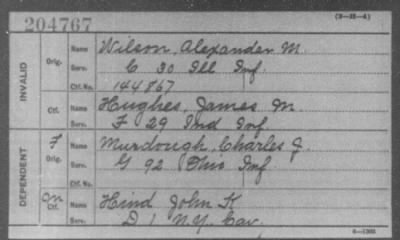 204767
(3-25-4)
INVALID
Orig.
Name Wilson, Alexander M.
Serv. C 30 Ill Inf.
Ctf. No. 144867
Ctf.
Name Hughes, James M.
Serv. F 29 Ind Inf.
DEPENDENT
F
Orig.
Name Murdough, Charles J.
Serv. G 92 Ohio Inf
Ctf. No.
Ctf.
Name Hind John K
Serv. D 1 N.Y. Cav.